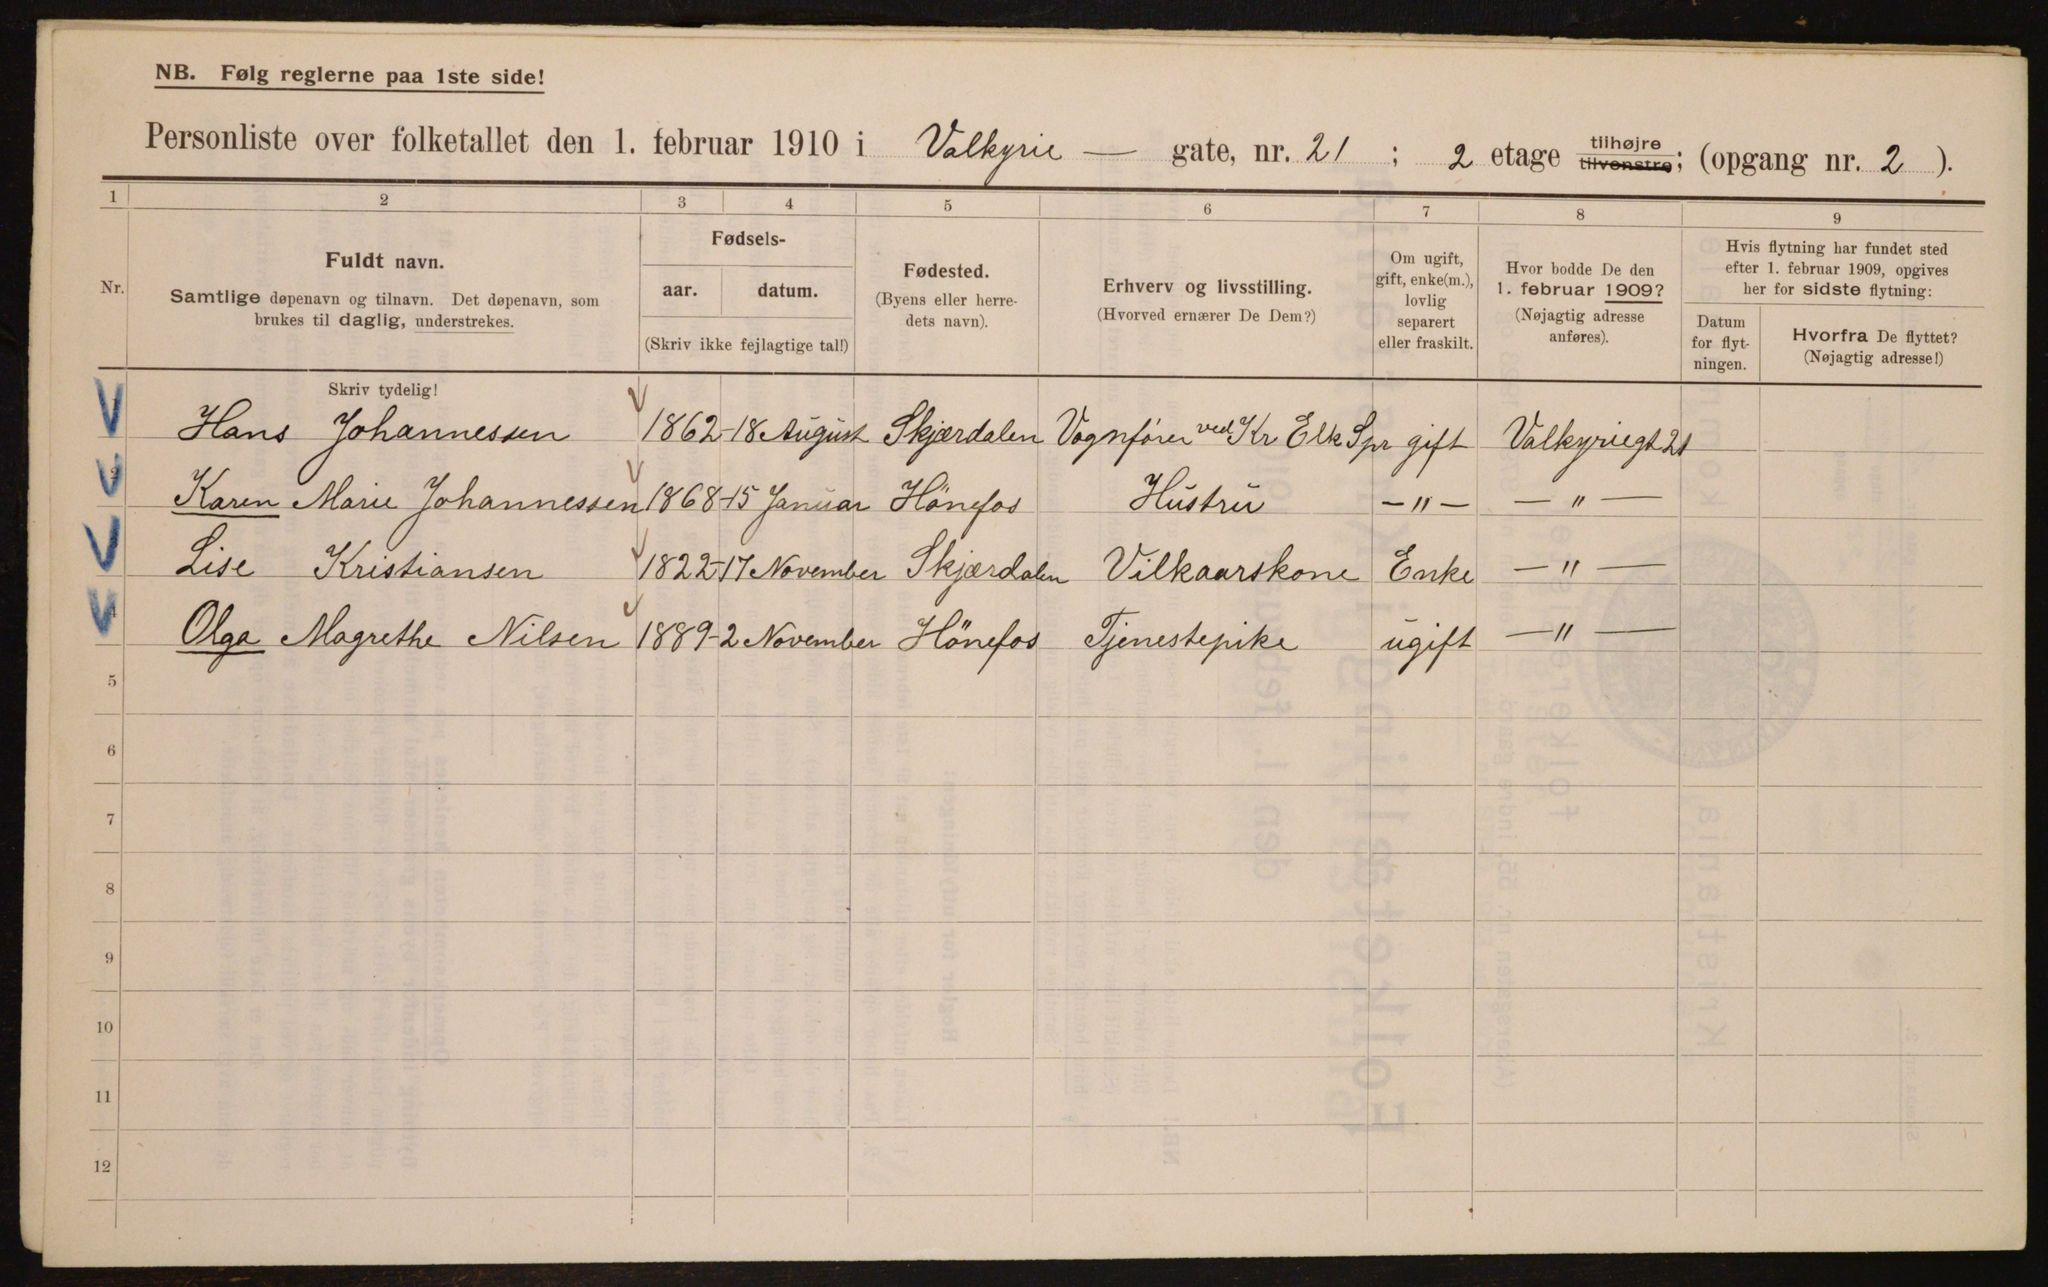 NB. Følg reglerne paa 1ste side!
Personliste over folketallet den 1. februar 1910 i Valkyrie — gate, nr. 21 ; 2 etage tilhøjre tilvenstre; (opgang nr. 2 ).
1 2 3 4 5 6 7 8 9
Nr.
Fuldt navn.
Samtlige døpenavn og tilnavn. Det døpenavn, som
brukes til daglig, understrekes.
Fødsels-
aar. datum.
(Skriv ikke fejlagtige tal!)
Fødested.
(Byens eller herre-
dets navn).
Erhverv og livsstilling.
(Hvorved ernærer De Dem?)
Om ugift,
gift, enke(m.),
lovlig
separert
eller fraskilt.
Hvor bodde De den
1. februar 1909?
(Nøjagtig adresse
anføres).
Hvis flytning har fundet sted
efter 1. februar 1909, opgives
her for sidste flytning:
Datum
for flyt-
ningen.
Hvorfra De flyttet?
(Nøjagtig adresse!)
Skriv tydelig!
Hans Johannessen 1862 - 18 August Skjærdalen Vognfører ved Kr Elk Spr gift Valkyriegt 21
Karen Marie Johannessen 1868 - 15 Januar Hönefos Hustru — " — — " —
Lise Kristiansen 1822 - 17 November Skjærdalen Vilkaarskone Enke — " —
4 Olga Magrethe Nilsen 1889 - 2 November Hönefos Tjenestepike ugift — " —
5
6
7
8
9
10
11
12